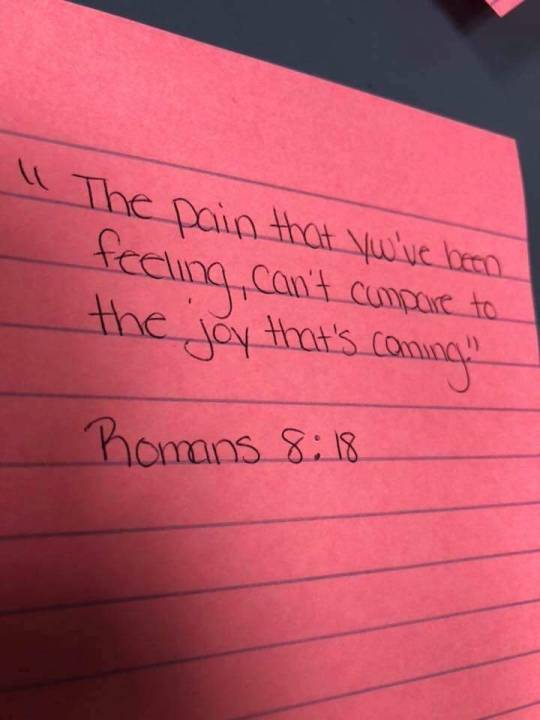 "The pain that you've been
feeling, can't compare to
the joy that's coming."
Romans 8:18